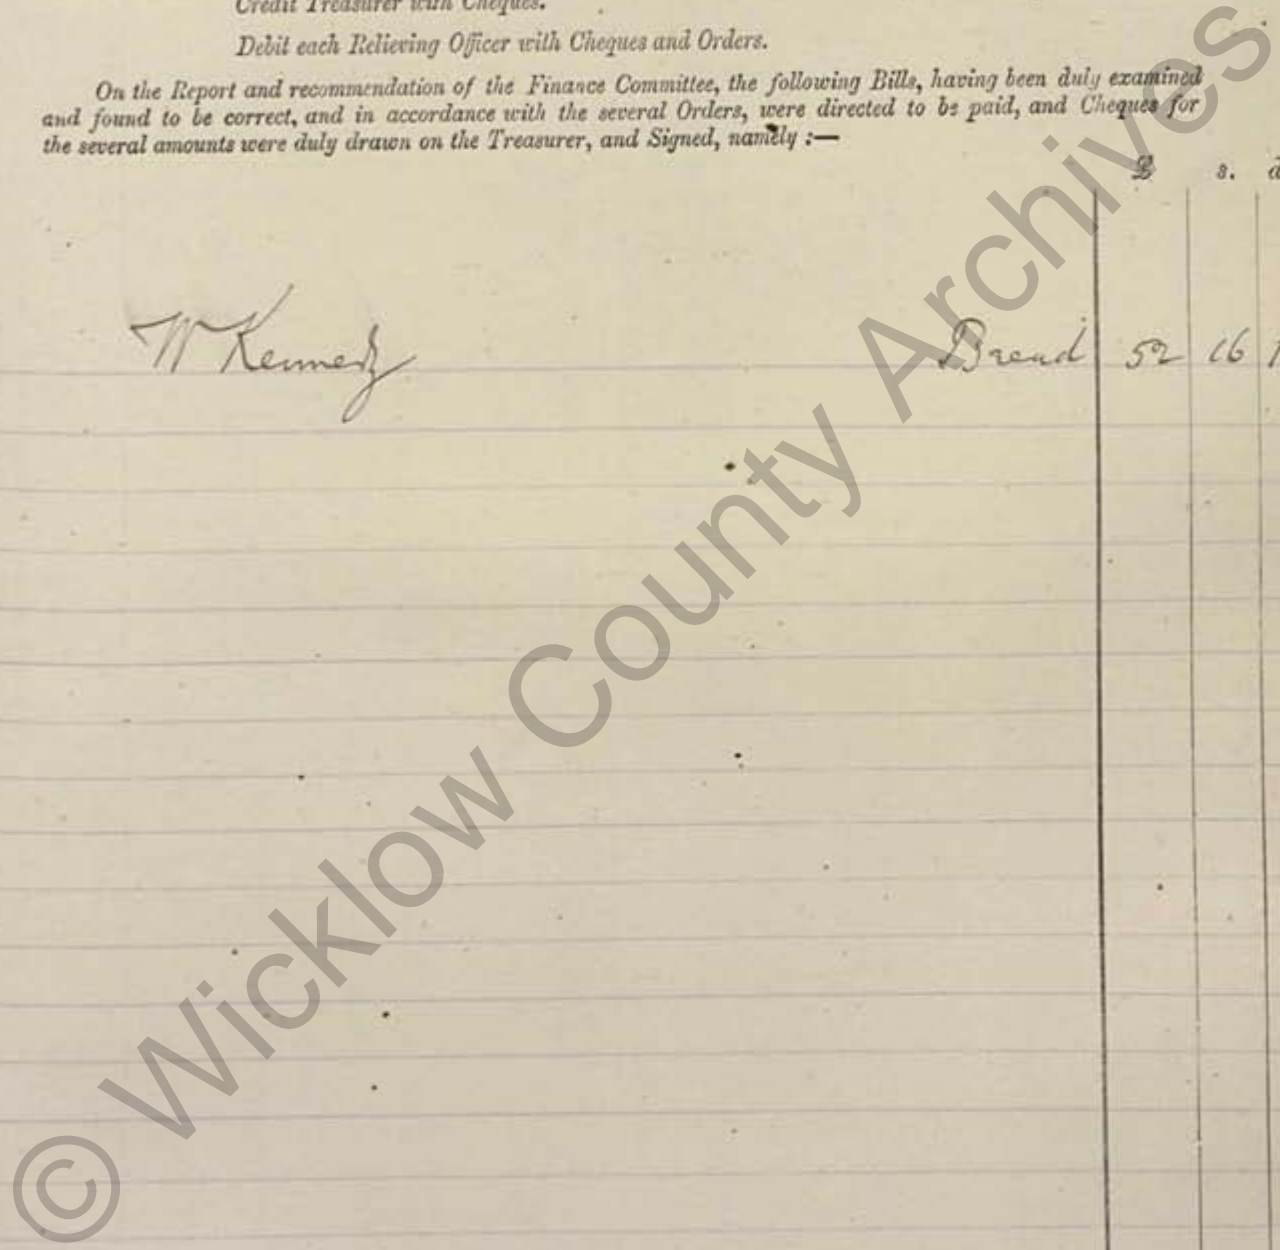 Credit Treasurer with Cheques.
Debit each Relieving Officer with Cheques and Orders.
On the Report and recommendation of the Finance Committee, the following Bills, having been duly examined
and found to be correct, and in accordance with the several Orders, were directed to be paid, and Cheques for
the several amounts were duly drawn on the Treasurer, and Signed, namely :—
£ s. d
W Kennedy Bread 52 16 1
© Wicklow County Archives